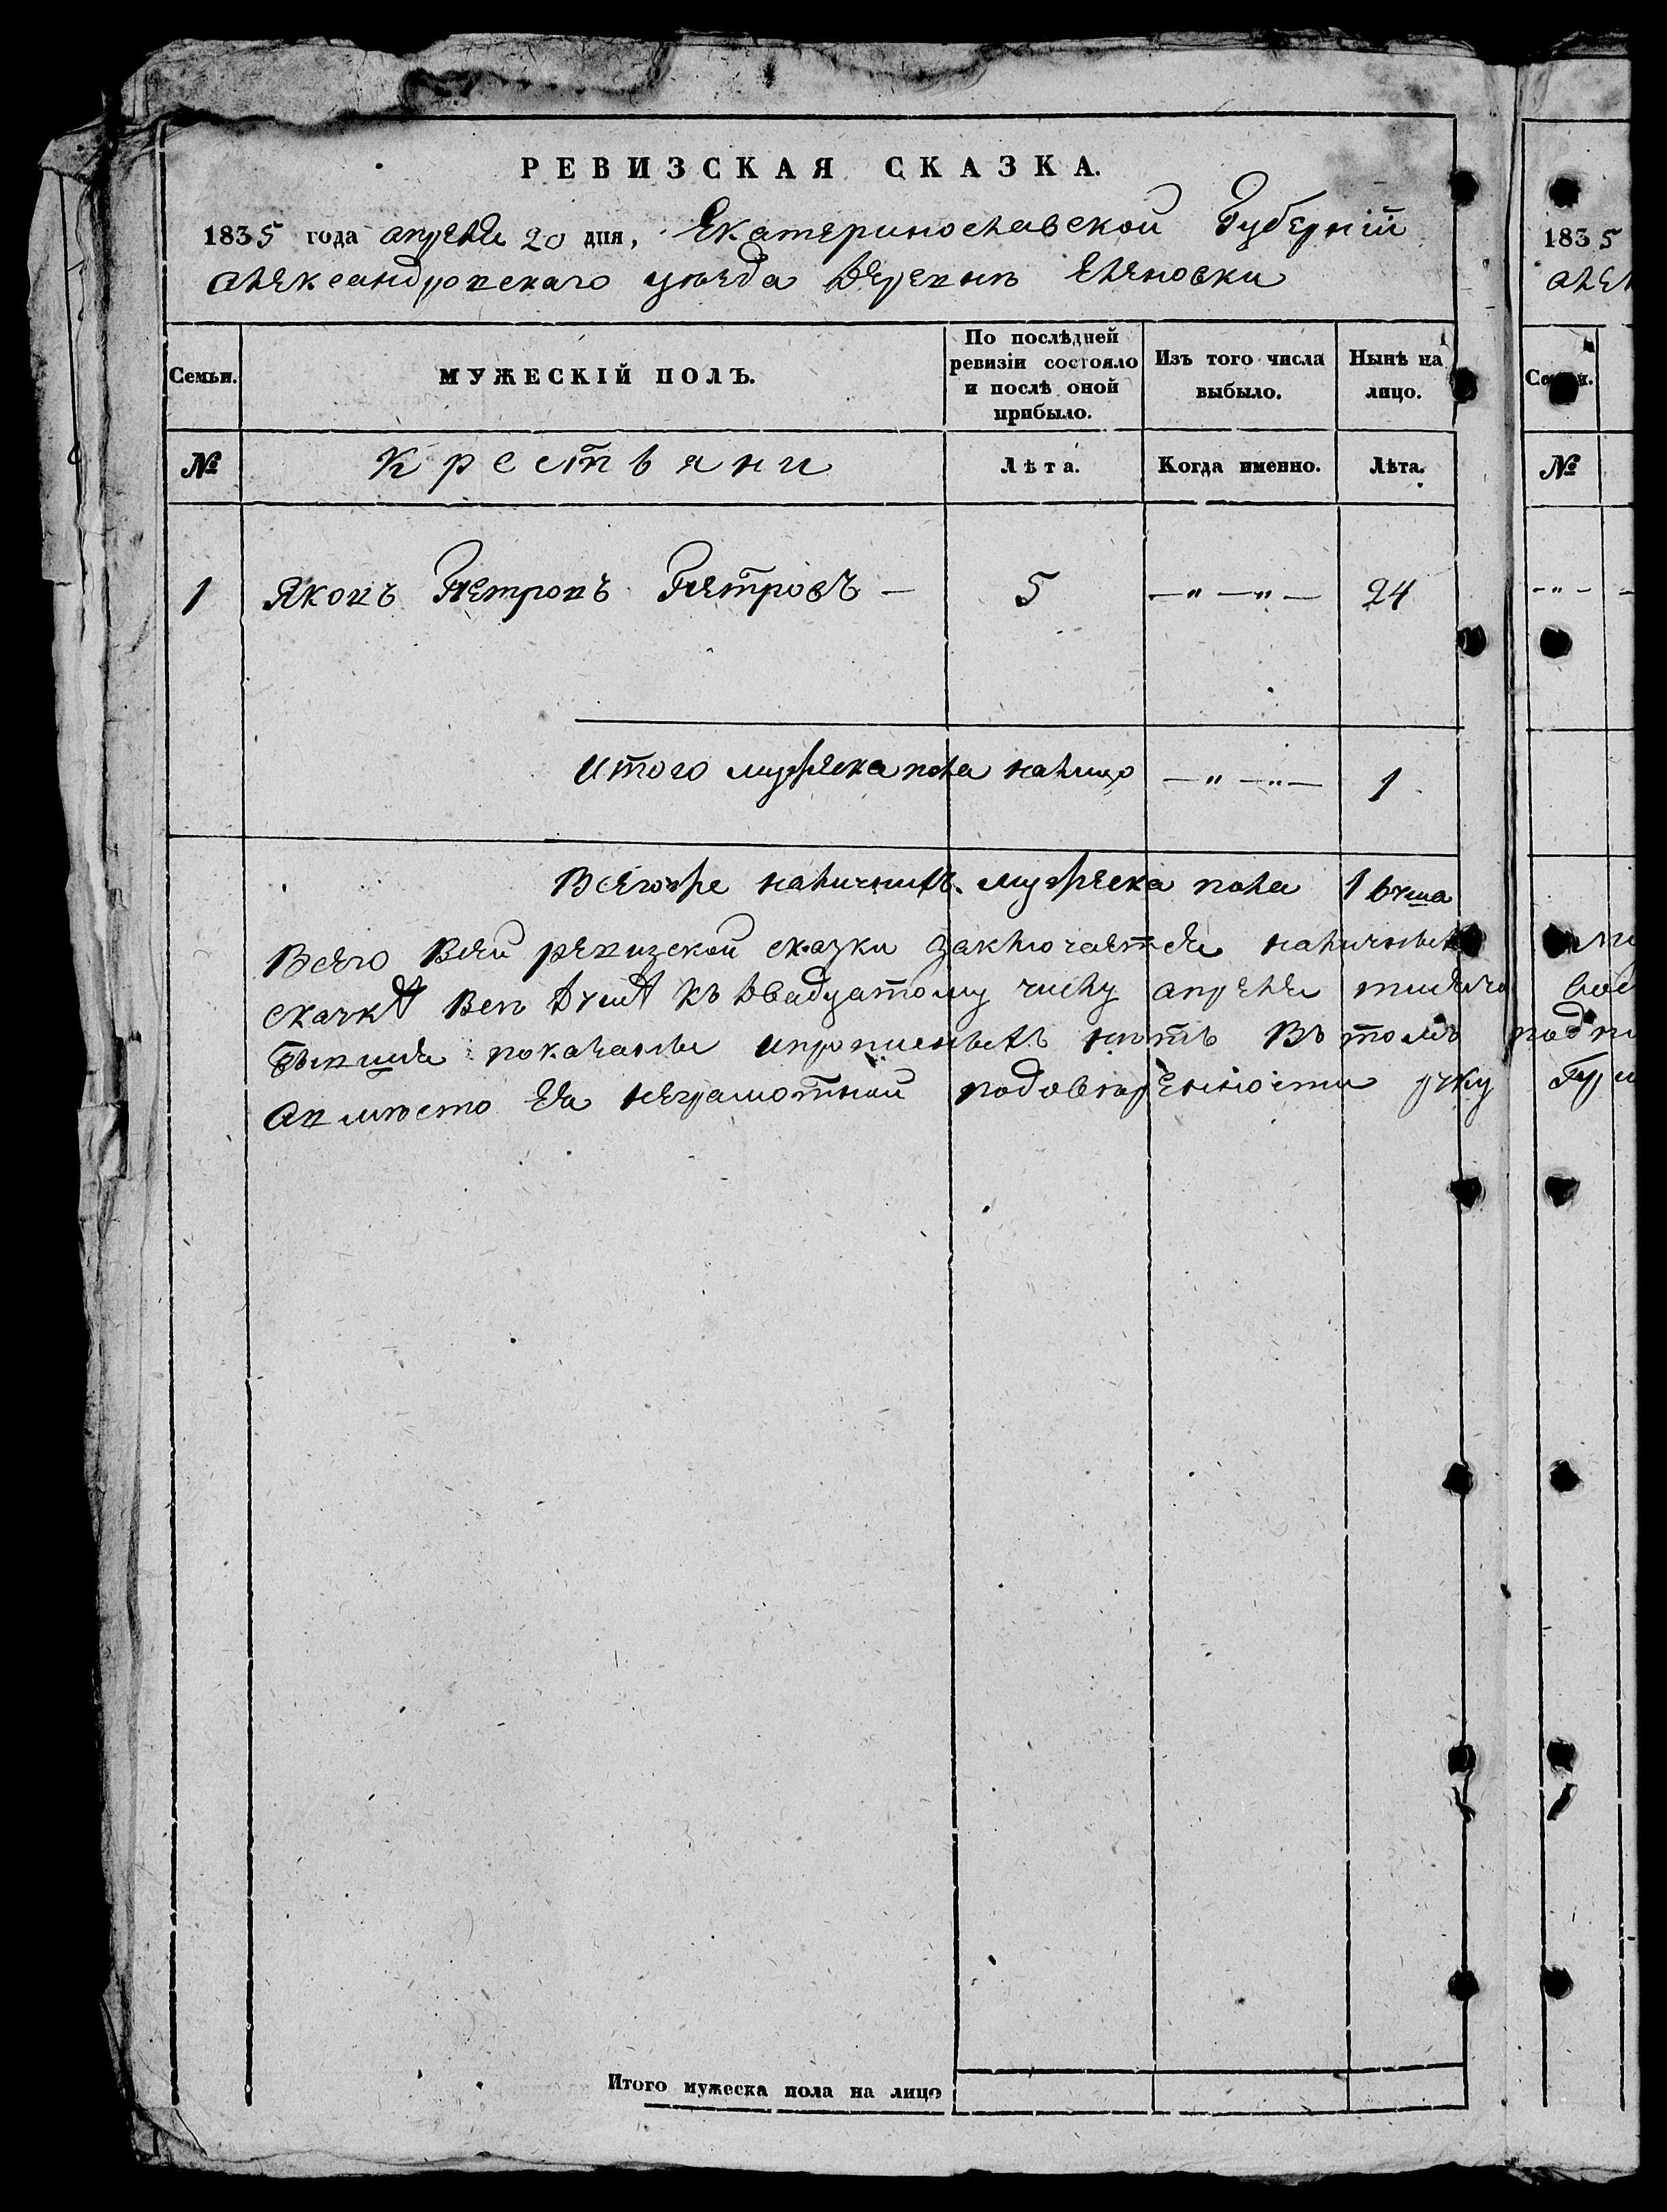 РЕВИЗСКАЯ СКАЗКА.
1835 года апреля 20 дня, Екатеринославской Губерніи
александровскаго уѣзда Деревнѣ Еленовки
Семьи.
МУЖЕСКІЙ ПОЛЪ.
По послѣдней ревизіи состояло и послѣ оной прибыло.
Изъ того числа выбыло.
Ныне на лицо.
№ Крестьяни Лѣта. Когда именно. Лѣта.
1 Яковъ Петровъ Петровъ — 5 —"—"— 24
итого мужеска пола налицо —"—"— 1
Всегоже наличныхъ мужеска пола 1 душа
Всего всей ревизской сказки заключается наличныхъ
сказкѣ все душѣ къ двадцатому числу апреля тысяча
бывшія показаны ипрописныхъ нѣтъ Въ томъ
авместо ея неграмотной подоверенности руку
Итого мужеска пола на лицо
1835
але
№